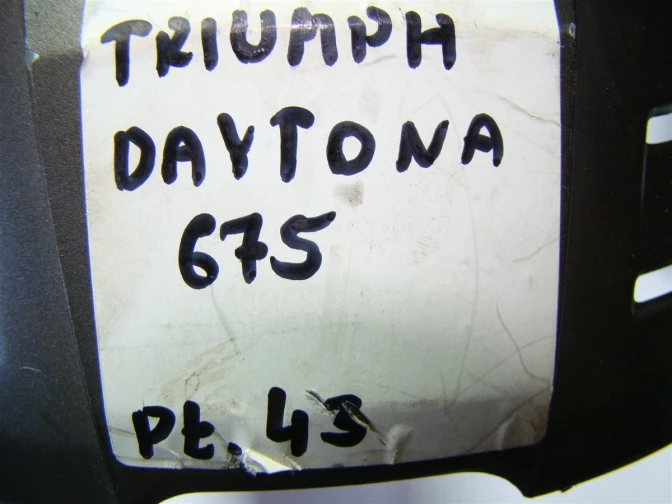 TRIUMPH
DAYTONA
675
Pt. 43